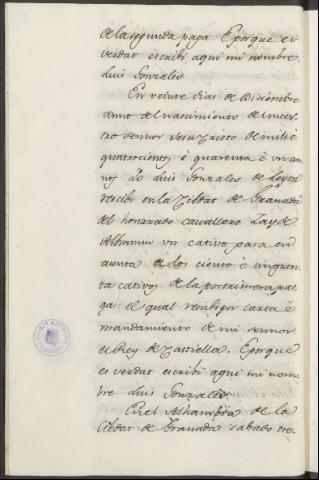 de la segunda paga. E porque es
verdat escribi aqui mi nombre
Luis Gonzales
En veinte dias de Diziembre
anno del nascimiento de nues-
tro sennor Jesu Cristo de mill è
quatrocientos è quarenta è un an-
nos Yo Luis Gonzales de Leyva
rescibi en la Cibdat de Granada
del honrrado cauallero Zayde
Alhamin un cativo para en
cuenta de los ciento è cinquen-
ta cativos de la postrimera pa-
ga: el qual rescibi por carta è
mandamiento de mi sennor
el Rey de Castiella. E porque
es verdat escribi aqui mi nom-
bre Luis Gonzales.
En el Alhambra de la
Cibdat de Granada sabado tre-